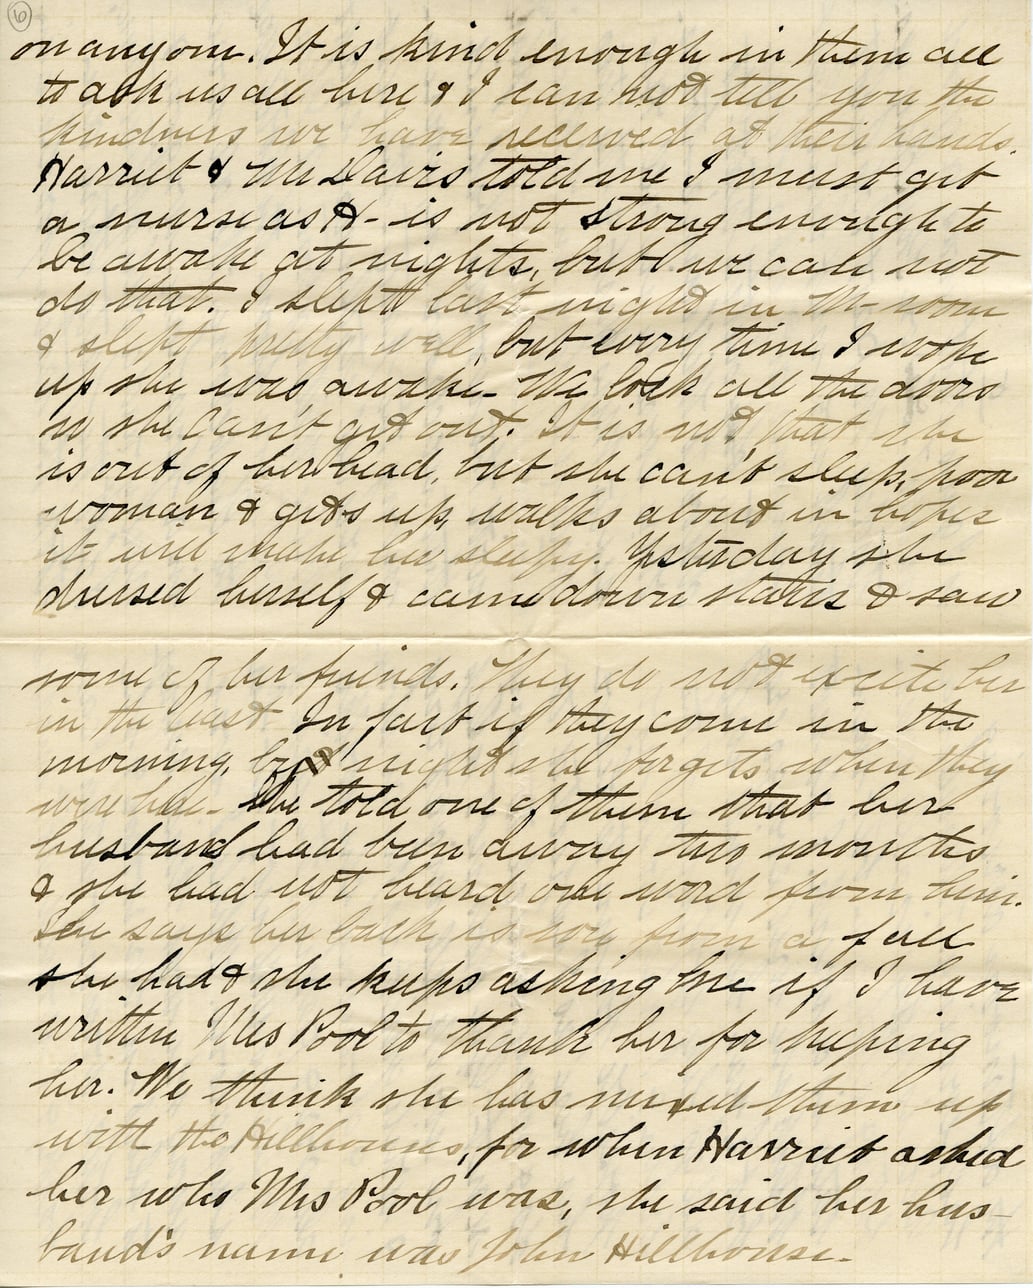 6
on anyone. It is kind enough in them all
to ask us all here & I can not tell you the
kindness we have received at their hands.
Harriet & Mr Davis told me I must get
a nurse as H- is not strong enough to
be awake at nights, but we can not
do that. I slept last night in M- room
& slept pretty well, but every time I woke
up she was awake. We lock all the doors
so she can't get out. It is not that she
is out of her head, but she can't sleep, poor
woman & gets up, walks about in hopes
it will make her sleepy. Yesterday she
dressed herself & came down stairs & saw
some of her friends. They do not excite her
in the least. In fact if they come in the
morning, by night she forgets when they
were here. She told one of them that her
husband had been away two months
& she had not heard one word from him.
She says her back is sore from a fall
she had & she keeps asking me if I have
written Mrs Pool to thank her for keeping
her. We think she has mixed them up
with the Hillhouses, for when Harriet asked
her who Mrs Pool was, she said her hus-
band's name was John Hillhouse.